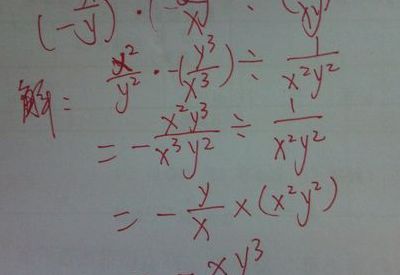 (-x/y) · (-y/x) ÷ (1/xy)
解: x²/y² · -(y³/x³) ÷ 1/x²y²
= - x²y³/x³y² ÷ 1/x²y²
= - y/x × (x²y²)
- xy³